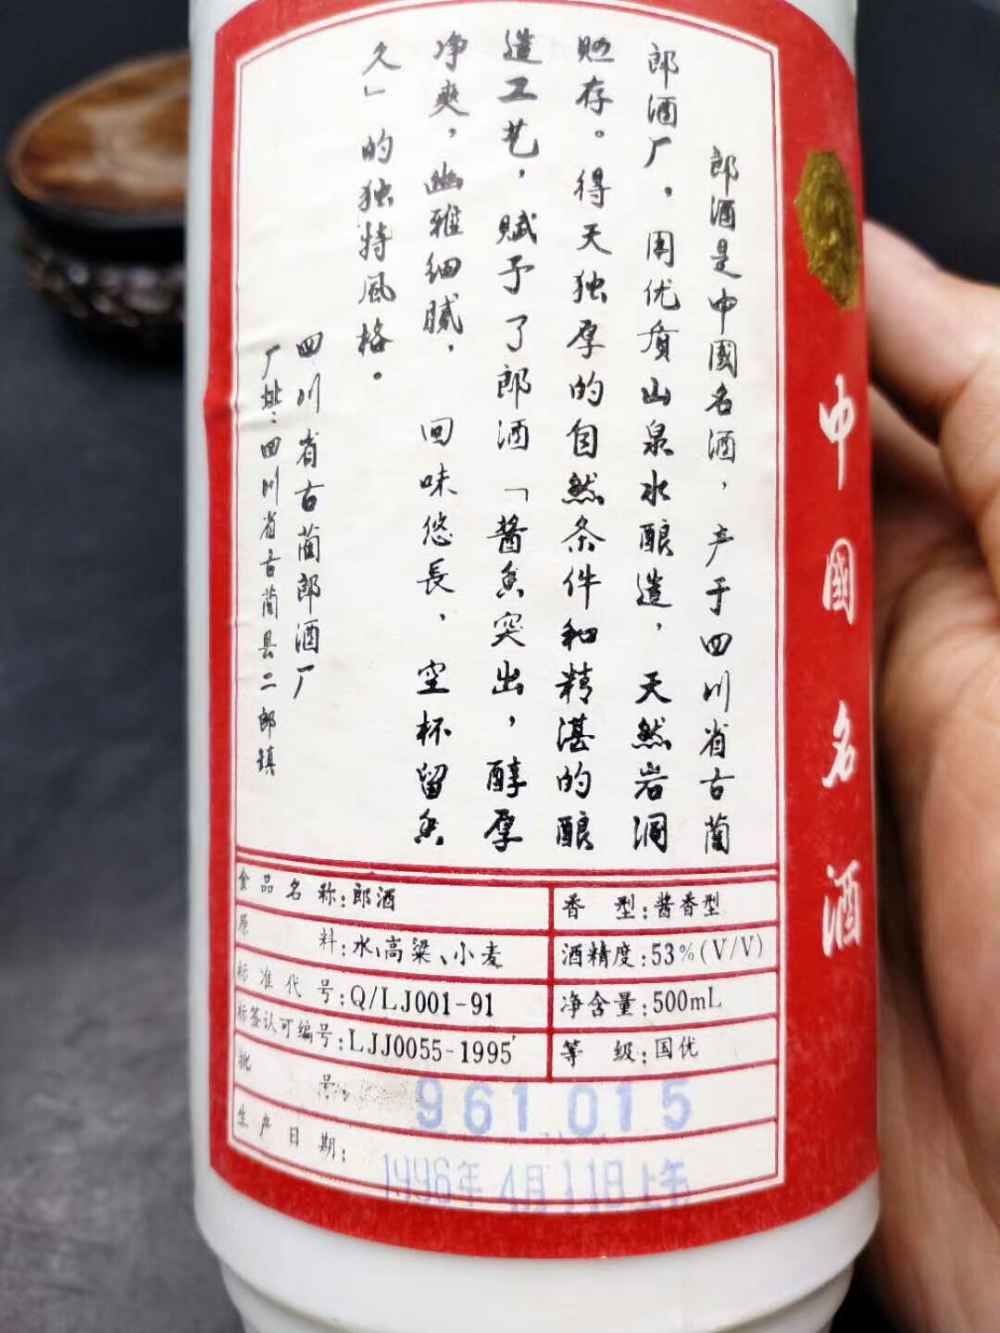 郎酒是中國名酒，产于四川省古蔺
郎酒厂，用优质山泉水酿造，天然岩洞
贮存。得天独厚的自然条件和精湛的酿
造工艺，赋予了郎酒「酱香突出，醇厚
净爽，幽雅细腻，回味悠長，空杯留香
久」的独特风格。
四川省古蔺郎酒厂
厂址：四川省古蔺县二郎镇
食品名称：郎酒
香型：酱香型
原料：水、高粱、小麦
酒精度：53%(V/V)
标准代号：Q/LJ001-91
净含量：500mL
标签认可编号：LJJ0055-1995
等级：国优
批号：961015
生产日期：1996年4月11日上午
中國名酒